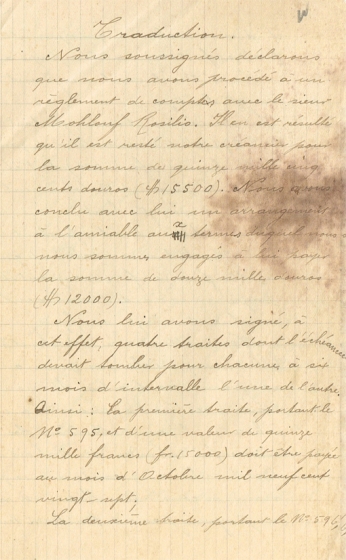 Traduction.
Nous soussignés déclarons
que nous avons procédé à un
règlement de comptes avec le sieur
Mohlouf Rosilio. Il en est résulté
qu'il est resté notre créancier pour
la somme de quinze mille cinq
cents douros ($15500). Nous avons
conclu avec lui un arrangement
à l'amiable aux termes duquel nous
nous sommes engagés à lui payer
la somme de douze mille douros
($12000).
Nous lui avons signé, à
cet effet, quatre traites dont l'échéance
devait tomber pour chacune à six
mois d'intervalle l'une de l'autre.
Ainsi: La première traite, portant le
Nº 595, et d'une valeur de quinze
mille francs (fr. 15000) doit être payée
au mois d'Octobre mil neuf cent
vingt-sept;
La deuxième traite, portant le Nº 596,